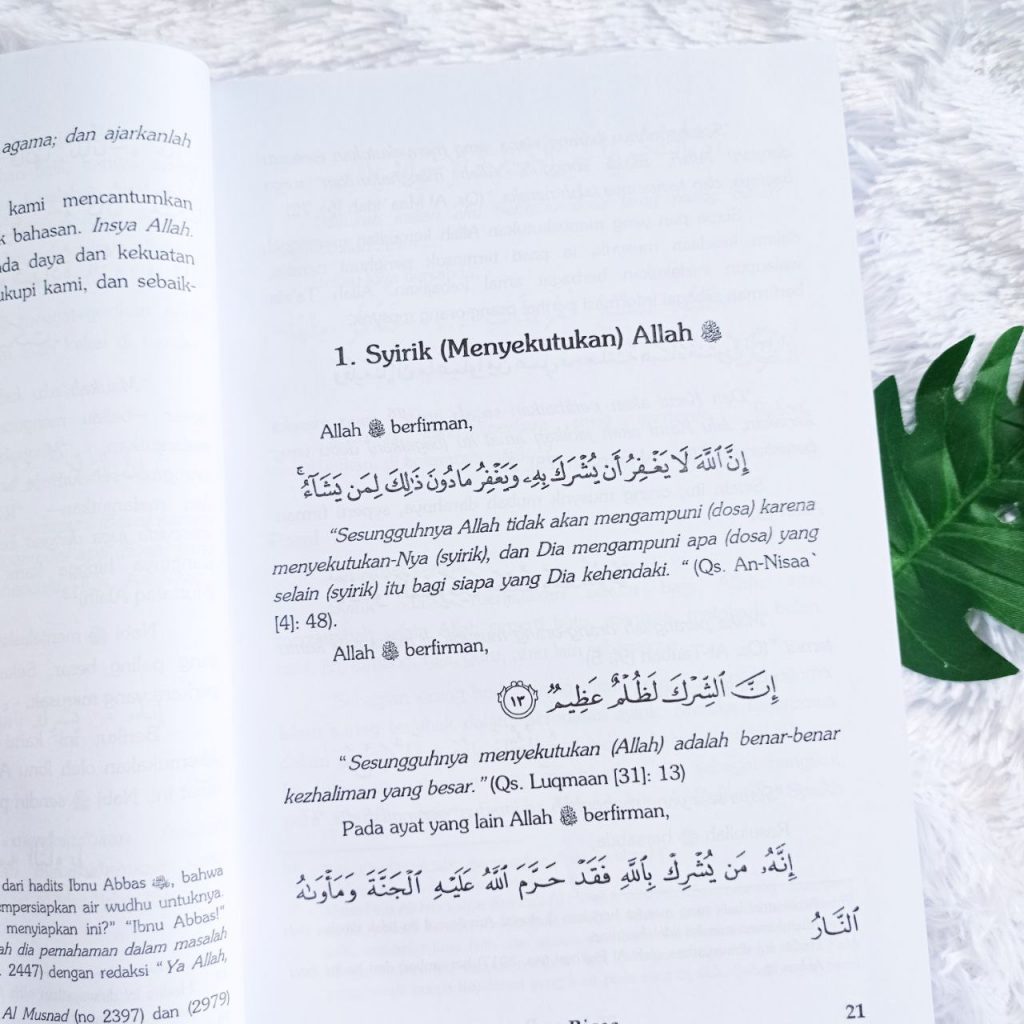 agama; dan ajarkanlah
kami mencantumkan
bahasan. Insya Allah.
daya dan kekuatan
kami, dan sebaik-
dari hadits Ibnu Abbas, bahwa
air wudhu untuknya.
menyiapkan ini?” “Ibnu Abbas!”
dia pemahaman dalam masalah
2447) dengan redaksi “Ya Allah,
Al Musnad (no 2397) dan (2979)
1. Syirik (Menyekutukan) Allah ﷻ
Allah ﷻ berfirman,
إِنَّ ٱللَّهَ لَا يَغْفِرُ أَن يُشْرَكَ بِهِۦ وَيَغْفِرُ مَا دُونَ ذَٰلِكَ لِمَن يَشَآءُ ۚ
“Sesungguhnya Allah tidak akan mengampuni (dosa) karena
menyekutukan-Nya (syirik), dan Dia mengampuni apa (dosa) yang
selain (syirik) itu bagi siapa yang Dia kehendaki. “ (Qs. An-Nisaa`
[4]: 48).
Allah ﷻ berfirman,
إِنَّ ٱلشِّرْكَ لَظُلْمٌ عَظِيمٌ ١٣
“Sesungguhnya menyekutukan (Allah) adalah benar-benar
kezhaliman yang besar.” (Qs. Luqmaan [31]: 13)
Pada ayat yang lain Allah ﷻ berfirman,
إِنَّهُۥ مَن يُشْرِكْ بِٱللَّهِ فَقَدْ حَرَّمَ ٱللَّهُ عَلَيْهِ ٱلْجَنَّةَ وَمَأْوَىٰهُ
ٱلنَّارُ
21